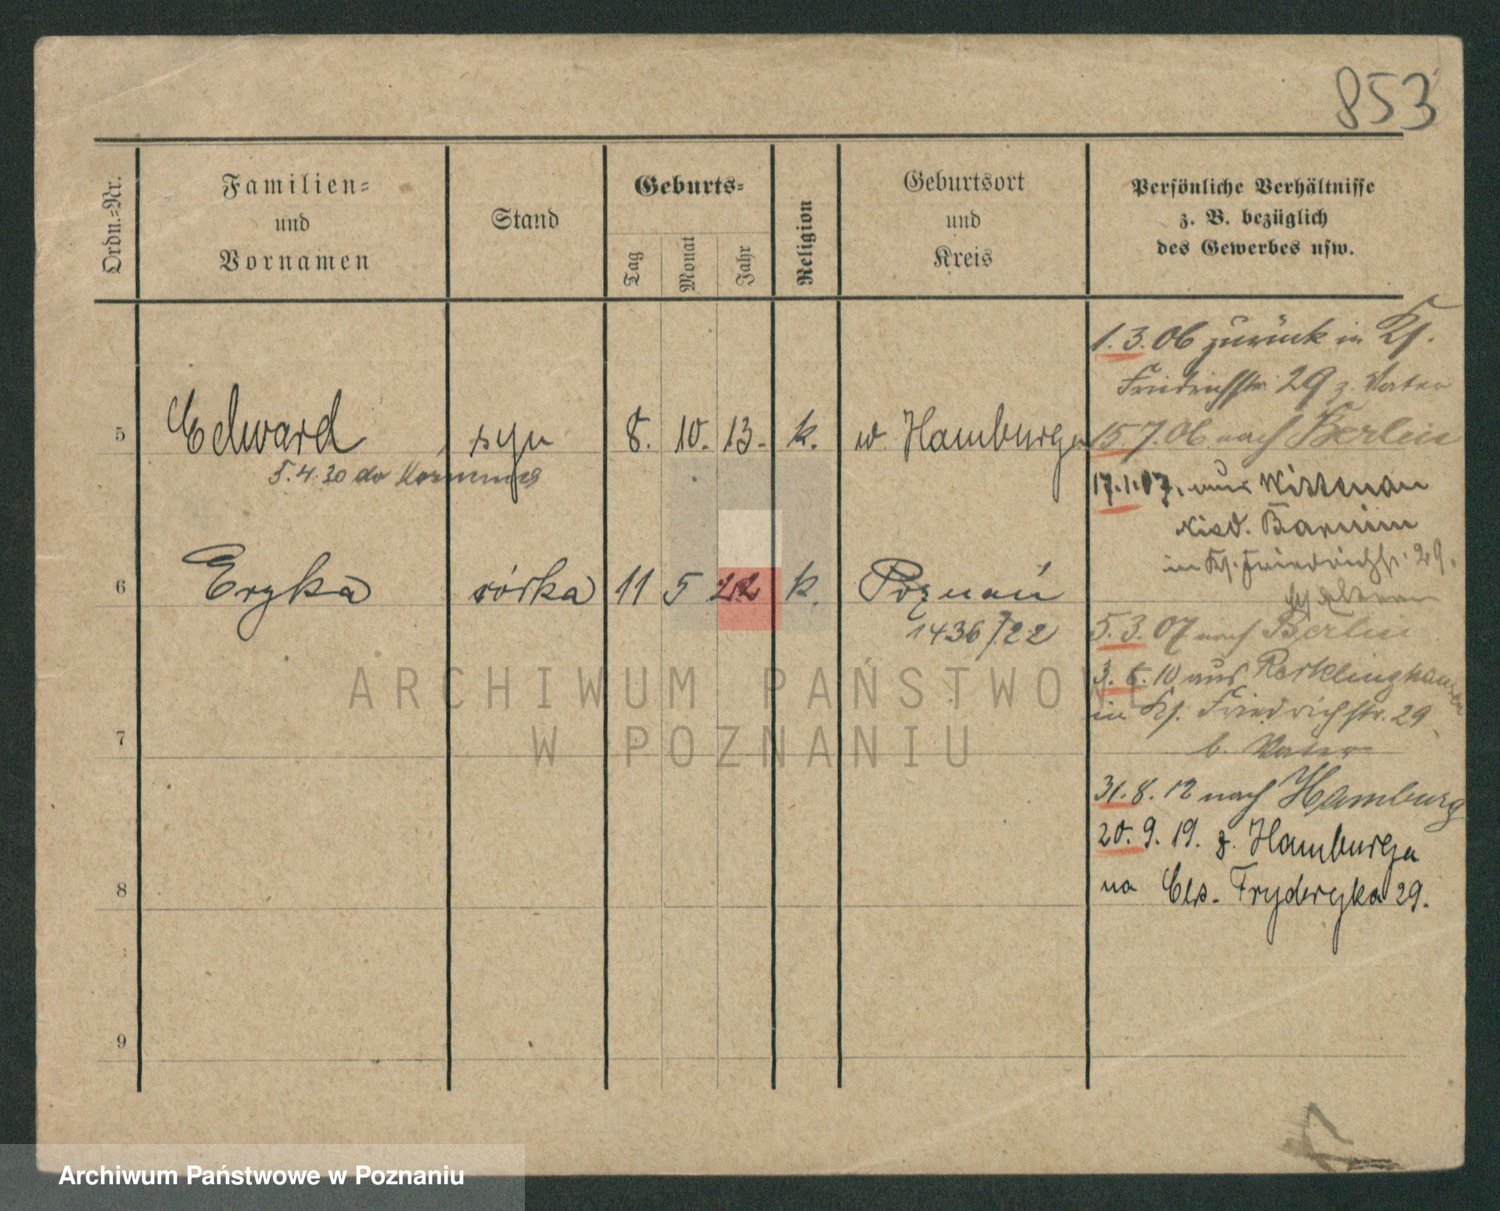 853
Ordn.-Nr.
Familien-
und
Vornamen
Stand
Geburts-
Tag
Monat
Jahr
Religion
Geburtsort
und
Kreis
Persönliche Verhältnisse
z. B. bezüglich
des Gewerbes usw.
5 Edward syn 8. 10. 13. k. w Hamburgu
5.4.30 do
6 Eryka córka 11 5 22 k. Poznań
1436/22
7
8
9
1.3.06 zurück in Kf.
Friedrichstr. 29 z. Vater
15.7.06 nach Berlin
17.1.07. aus
Barnim
in Kf. Friedrichstr. 29.
5.3.07 nach Berlin
3.6.10 aus Recklinghausen
in Kf. Friedrichstr. 29
b. Vater
31.8.12 nach Hamburg
20.9.19. z. Hamburga
na Ces. Fryderyka 29.
ARCHIWUM PAŃSTWOWE
W POZNANIU
Archiwum Państwowe w Poznaniu